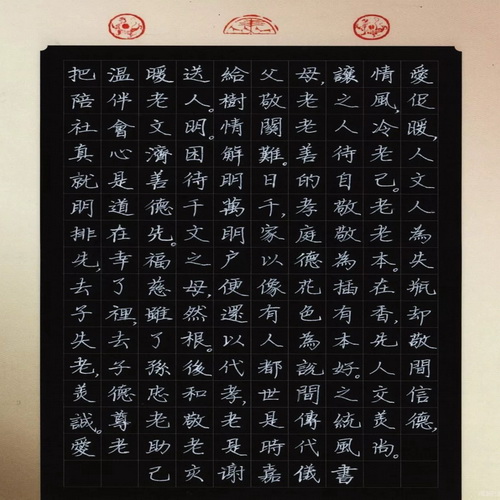 把温暖送給父母,讓情愛
陪伴老人。樹敬老之風,促
社會文明。情關老人冷暖,
真心濟困解難。善待老人
就是善待明日的自己。文
明道德千萬千,孝敬老人
排在先。文明家庭敬老為
先,幸福之户以德為本。失
去了慈母,便像花插在瓶
子裡,雖然還有色有香,却
失去了根。以人為本先敬
老,子孫後代都說好。人間
美德忠和孝,世間之交信
誠。尊老敬老是傳統美德,
愛老助老是時代風尚。
己亥謝嘉儀書